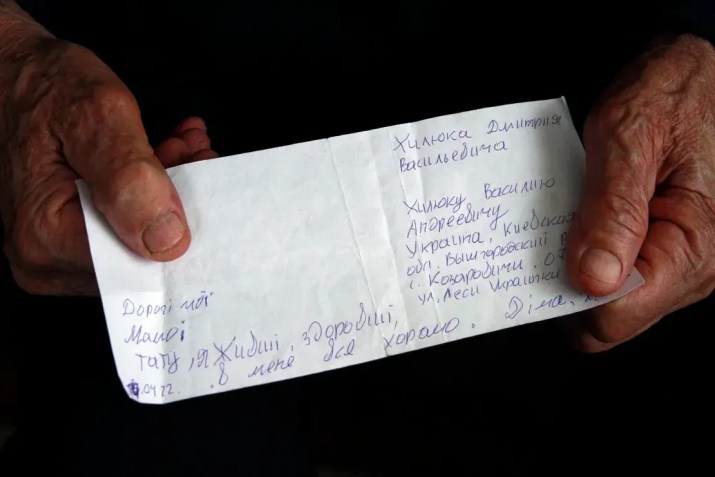 Хилюка Дмитрия
Васильевича
Хилюку Василию
Андреевичу
Украина, Киевская
обл. Вышгородский
с. Козаровичи.
ул. Леси Украинки
Дорогі мої
Мамо і
тату, я живий, здоровий,
в мене все хорошо. Діма,
.04.22.